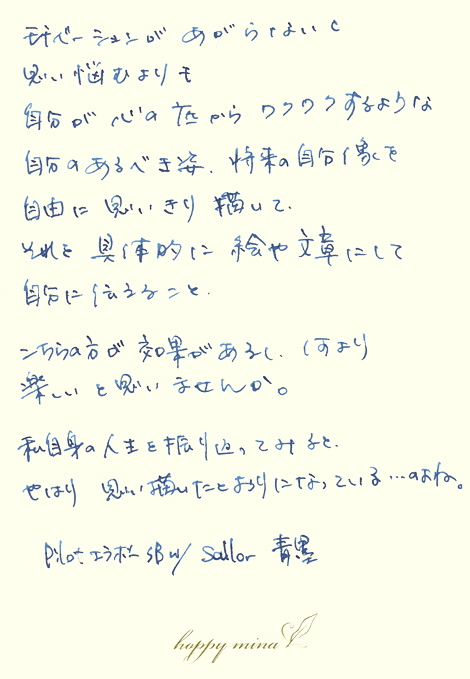 モチベーションが あがらないと
思い悩むよりも
自分が心の底から ワクワクするような
自分のあるべき姿、将来の自分像を
自由に 思いきり 描いて、
それを 具体的に 絵や文章にして
自分に伝えること。
こちらの方が 効果があるし、何より
楽しいと思いませんか。
私自身の人生を振り返ってみると、
やはり 思い描いたとおりになっている…のよね。
Pilot エラボー SB w/ Sailor 青墨
happy mina